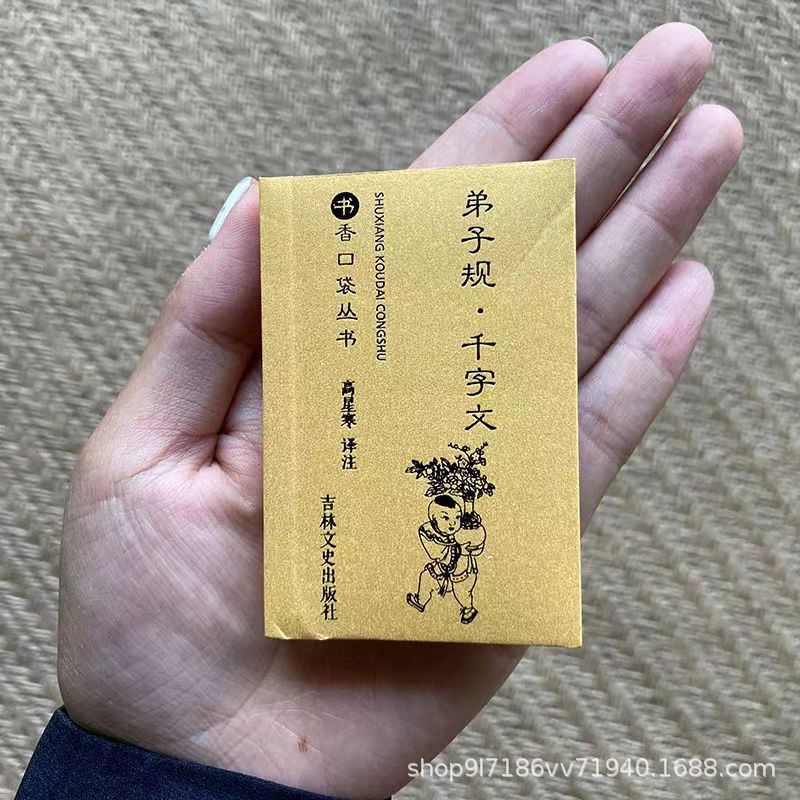 弟子规·千字文
书香口袋丛书
SHUXIANG KOUDAI CONGSHU
高星寒 译注
吉林文史出版社
shop9l7186vv71940.1688.com